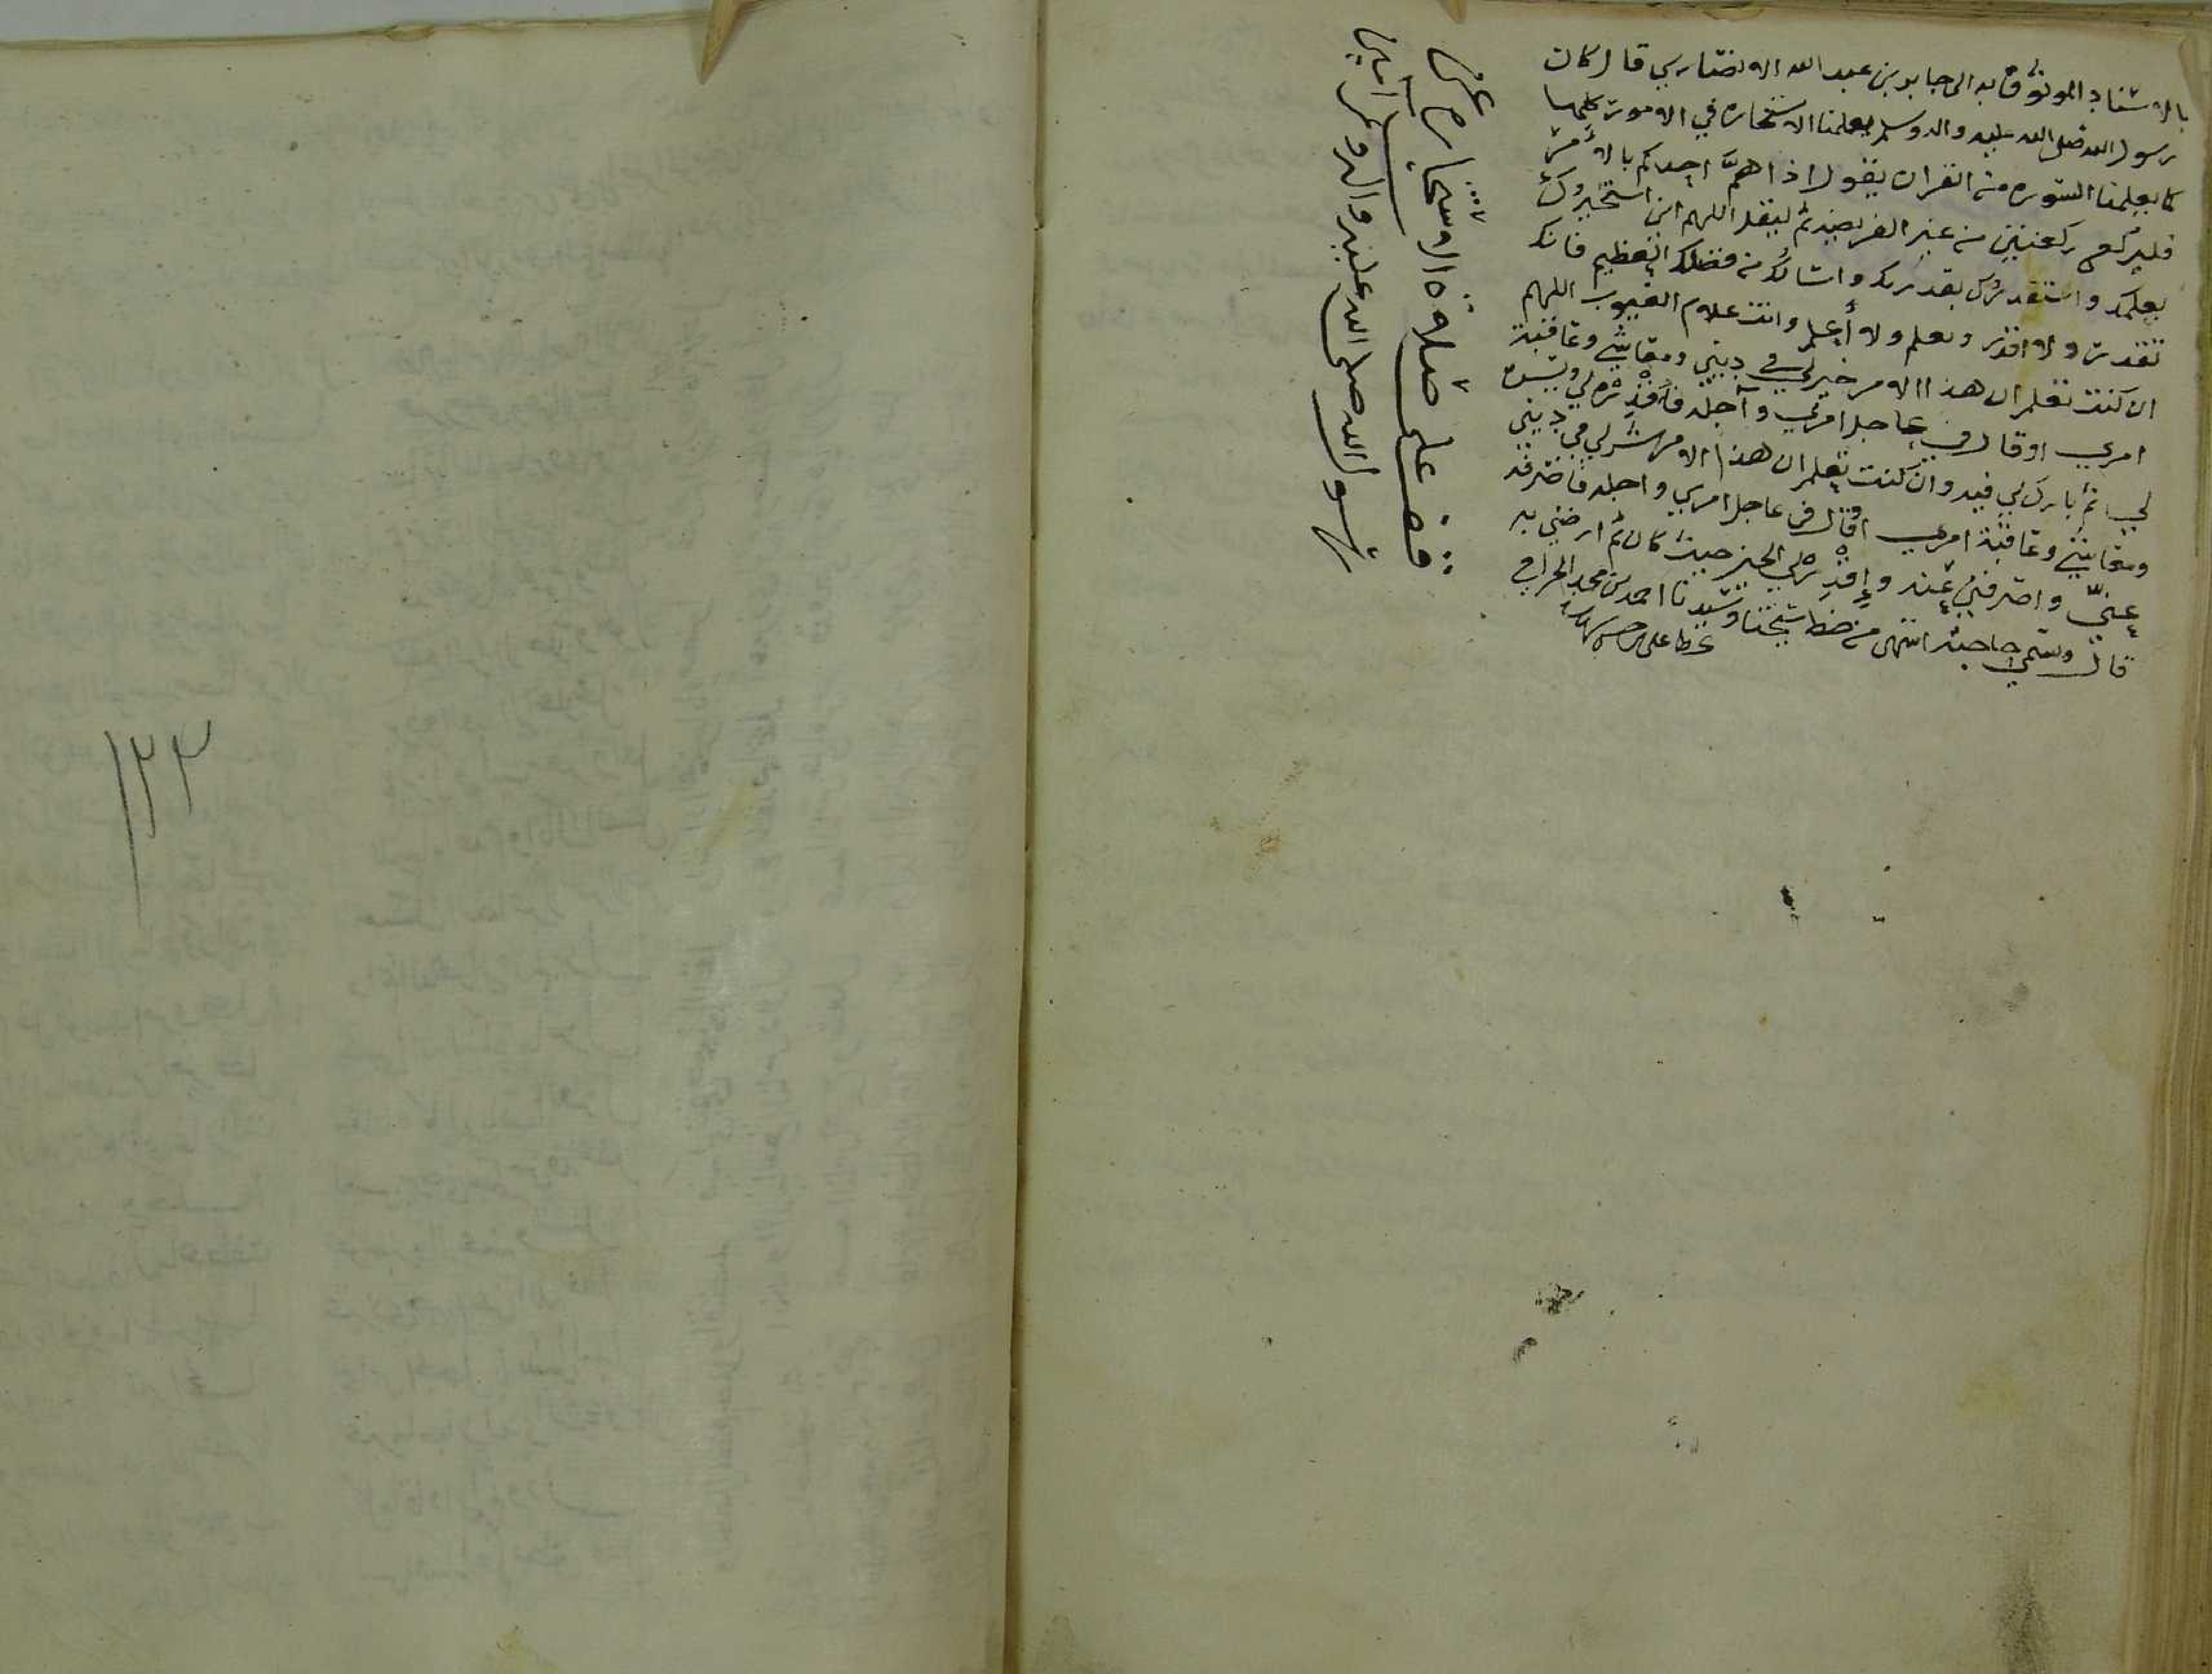 بالاسناد الموثوق به الى جابر بن عبد الله الانصاري قال كان
رسول الله صلى الله عليه واله وسلم يعلمنا الاستخاره في الامور كلها
كما يعلمنا السوره من القران يقول اذا همَّ احدكم بالأمر
فليركع ركعتين من غير الفريضه ثم ليقل اللهم اني استخيرك
بعلمك واستقدرك بقدرتك واسالك من فضلك العظيم فانك
تقدر ولا اقدر وتعلم ولا أعلم وانت علام الغيوب اللهم
ان كنت تعلم ان هذا الامر خير لي في ديني ومعاشي وعاقبة
امري او قال في عاجل امري وآجله فاقدره لي ويسره
لي ثم بارك لي فيه وان كنت تعلم ان هذا الامر شر لي في ديني
ومعاشي وعاقبة امري او قال في عاجل امري واجله فاصرفه
عنيّ واصرفني عنه واقدر لي الخير حيث كان ثم ارضني به
قال ويسمي حاجته انتهى من خط شيخنا وسيدنا احمد بن محمد
قف على صلاة الاستخاره عن
رسول الله صلى الله عليه واله وسلم امين
١٢٣